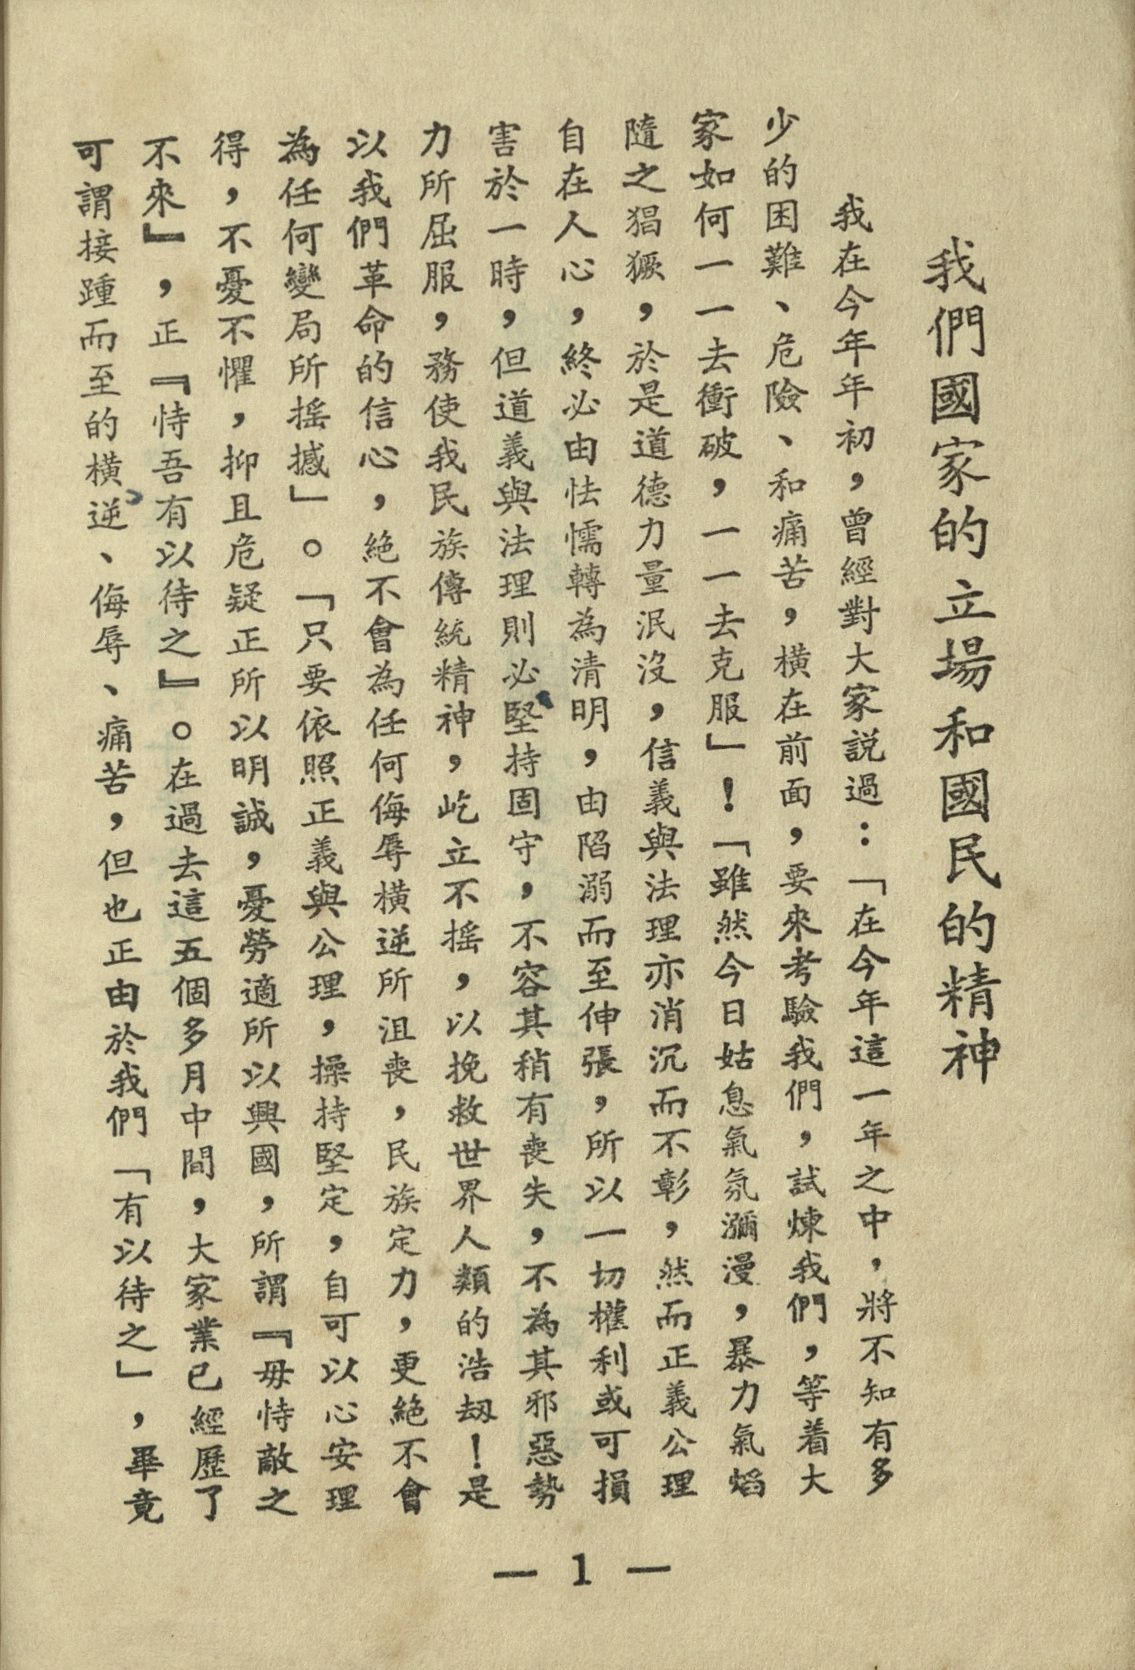 我們國家的立場和國民的精神
我在今年年初，曾經對大家説過：「在今年這一年之中，將不知有多
少的困難、危險、和痛苦，橫在前面，要來考驗我們，試煉我們，等着大
家如何一一去衝破，一一去克服」！「雖然今日姑息氣氛瀰漫，暴力氣焰
隨之猖獗，於是道德力量泯沒，信義與法理亦消沉而不彰，然而正義公理
自在人心，終必由怯懦轉為清明，由陷溺而至伸張，所以一切權利或可損
害於一時，但道義與法理則必堅持固守，不容其稍有喪失，不為其邪惡勢
力所屈服，務使我民族傳統精神，屹立不搖，以挽救世界人類的浩刼！是
以我們革命的信心，絶不會為任何侮辱橫逆所沮喪，民族定力，更絶不會
為任何變局所搖撼」。「只要依照正義與公理，操持堅定，自可以心安理
得，不憂不懼，抑且危疑正所以明誠，憂勞適所以興國，所謂『毋恃敵之
不來』，正『恃吾有以待之』。在過去這五個多月中間，大家業已經歷了
可謂接踵而至的橫逆、侮辱、痛苦，但也正由於我們「有以待之」，畢竟
— 1 —